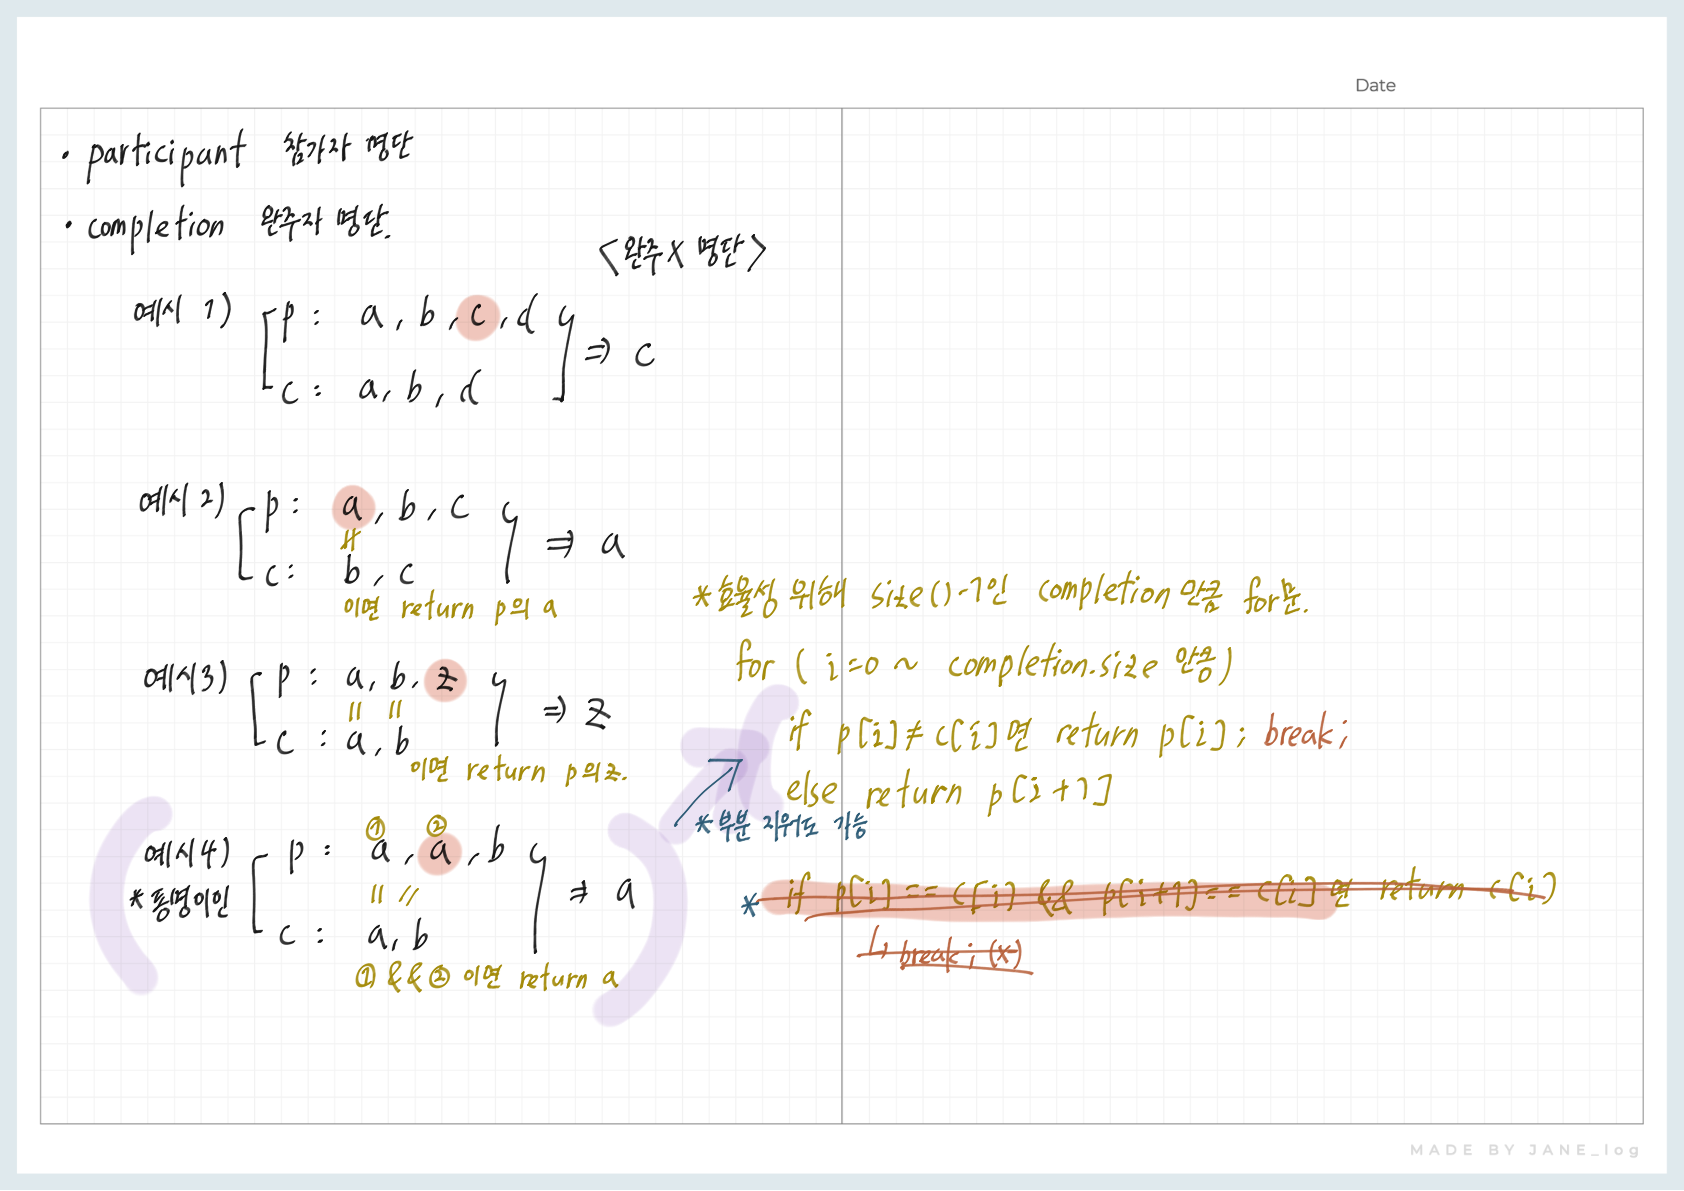 Date
• participant 참가자 명단
• completion 완주자 명단.
<완주X 명단>
예시 1) p : a, b, c, d
⇒ c
c : a, b, d
예시 2) p : a, b, c
⇒ a
c : b, c
이면 return p의 a
예시3) p : a, b, z
⇒ z
c : a, b
이면 return p의 z.
① ②
예시4) p : a, a, b
*동명이인
⇒ a
c : a, b
① && ② 이면 return a
*효율성 위해 size()-1인 completion 만큼 for문.
for ( i=0 ~ completion.size 만큼)
if p[i]≠c[i]면 return p[i]; break;
else return p[i+1]
*부분 지워도 가능
* if p[i] == c[i] && p[i+1] == c[i]면 return c[i]
↳ break; (x)
MADE BY JANE_log